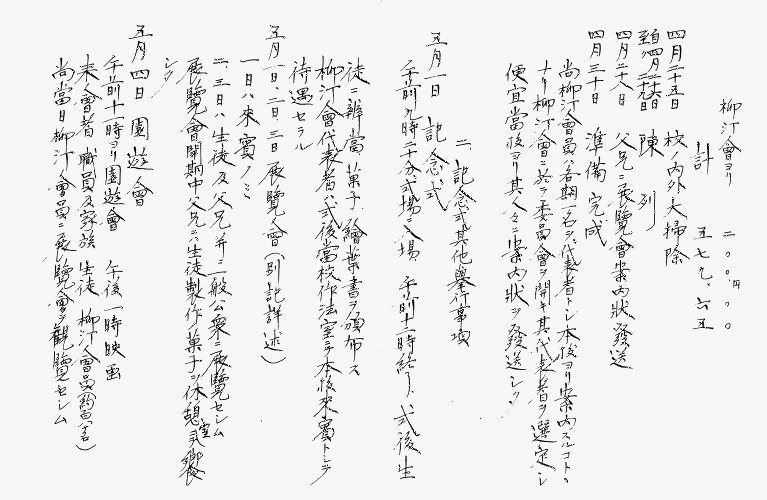 柳汀會ヨリ 二〇〇円〇〇
計 五七九、六五
四月二十五日 校ノ内外大掃除
自四月二十六日至四月二十九日 陳列
四月二十八日 父兄ニ展覽會案内狀發送
四月三十日 準備完成
尚柳汀會員ハ各期一名ヲ代表者トシ本校ヨリ案内スルコトヽ
ナリ柳汀會ニ於テ委員會ヲ開キ其代表者ヲ選定シ
便宜當校ヨリ其人々ニ案内狀ヲ發送シタリ
二、記念式其他擧行事項
五月一日 記念式
午前九時二十分式場ニ入場 午前十一時終了、式後生
徒ニ辨當 菓子、繪葉書ヲ頒布ス
柳汀會代表者ハ式後當校作法室ニテ本校來賓トシテ
待遇セラル
五月一日、二日、三日 展覽會(別記詳述)
一日ハ來賓ノミ
二、三日ハ生徒及父兄并ニ一般公衆ニ展覽セシム
展覽會開期中、父兄ニハ生徒製作ノ菓子ヲ休憩室ニテ饗
シタリ
五月四日 園遊會
午前十一時ヨリ園遊會 午後一時映画
來會者 職員及家族 生徒 柳汀會員(約百八十名)
尚當日柳汀會員ニ展覽會ヲ觀覽セシム